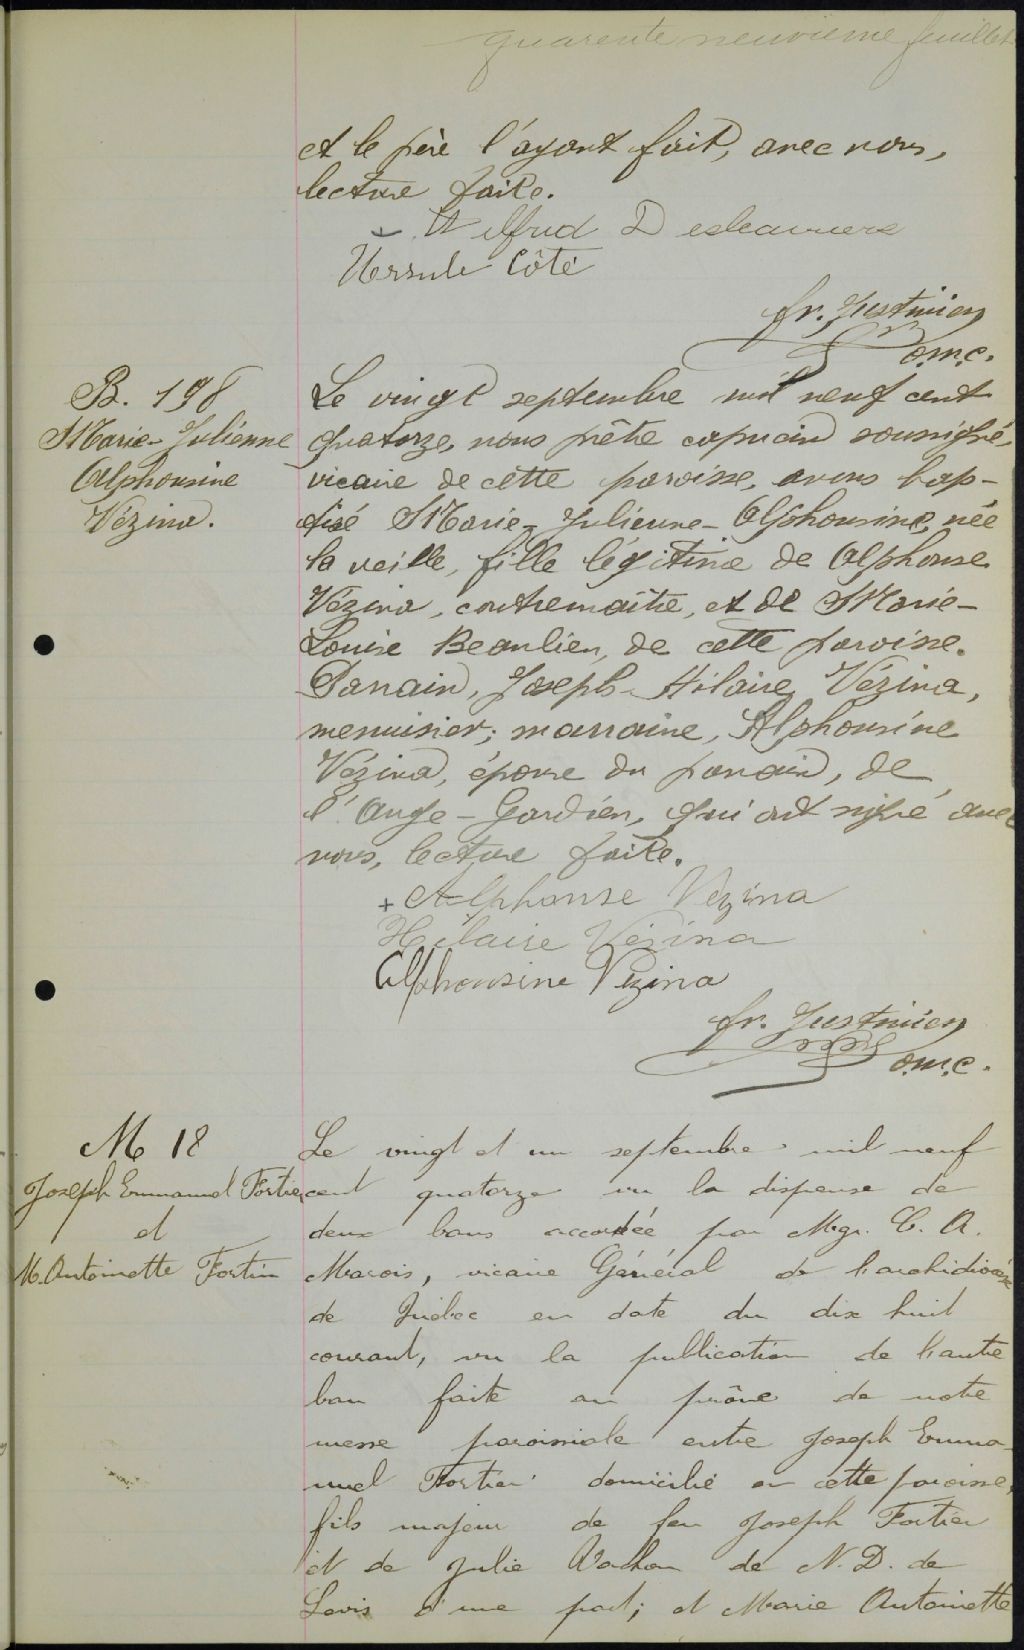 quarante neuvième feuillet
et le père l'ayant fait, avec nous,
lecture faite.
Wilfrid Deslauriers
Ursule Côté
fr. Justinien
o.m.c.
B. 198
Marie-Julienne
Alphonsine
Vézina.
Le vingt septembre mil neuf cent
quatorze, nous prêtre capucin soussigné,
vicaire de cette paroisse, avons bap-
tisé Marie-Julienne-Alphonsine, née
la veille, fille légitime de Alphonse
Vézina, contremaître, et de Marie-
Louise Beaulieu, de cette paroisse.
Parrain, Joseph-Hilaire Vézina,
menuisier; marraine, Alphonsine
Vézina, épouse du parrain, de
l'Ange-Gardien, qui ont signé avec
nous, lecture faite.
+ Alphonse Vézina
Hilaire Vézina
Alphonsine Vézina
fr. Justinien
o.m.c.
M 18
Joseph Emmanuel Fortier
et
M. Antoinette Fortin
Le vingt et un septembre mil neuf
cent quatorze vu la dispense de
deux bans accordée par Mgr. C. A.
Marois, vicaire Général de l'archidiocèse
de Québec en date du dix huit
courant, vu la publication de l'autre
ban faite au prône de notre
messe paroissiale entre Joseph Emma-
nuel Fortier domicilié en cette paroisse,
fils majeur de feu Joseph Fortier
et de Julie Vachon de N. D. de
Levis d'une part; et Marie Antoinette